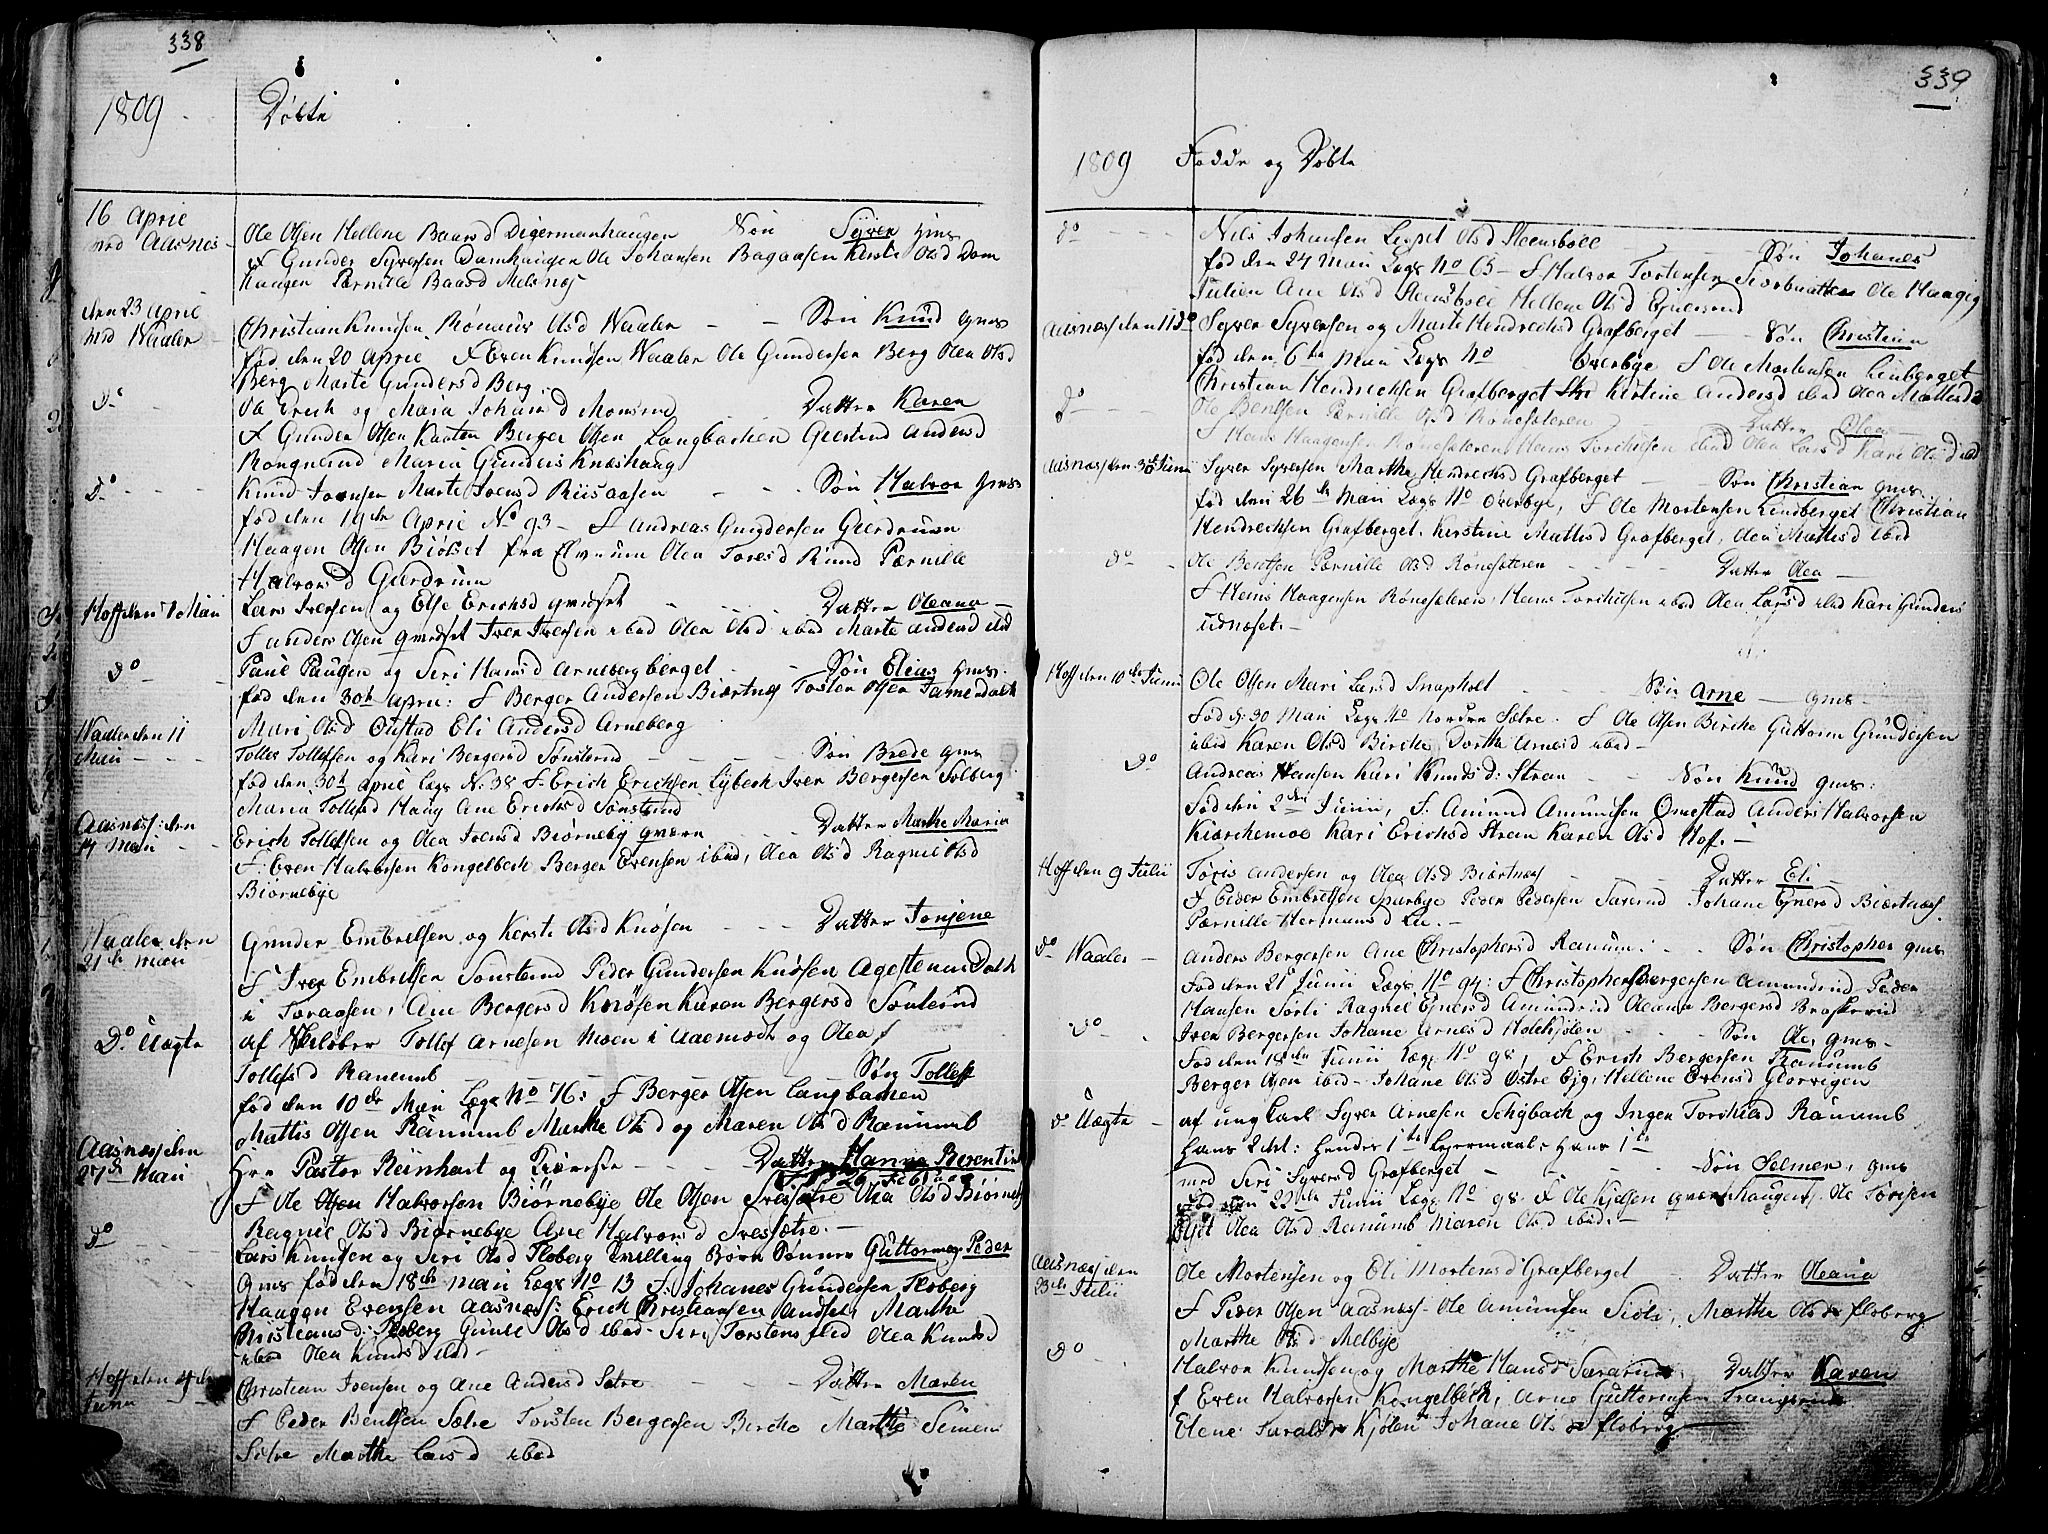 338
1809 Døbte
16 April
ved Aasnes
Ole Olsen Hellene Baarsd Digermanhaugen Søn Syver gms
F Gunder Syversen Damhaugen Ole Johansen Bagaasen Kersti Olsd Dam
haugen Pernille Baarsd Melsnes
den 23 April
ved Vaaler
Christian Knudsen Olsd Vaaler - - Søn Knud gms
fød den 20 April F Even Knudsen Vaaler Ole Gundersen Berg Olea Olsd
Berg Marte Gundersd Berg
Do
Erich og Maria Johansd Datter Karen
F Gunder Olsen Berger Olsen Langbachen Andersd
Rongnerud Maria Gunders Knæshaug
Do
Knud Joensen Marte Iversd Riisaasen - - Søn Halvor gms
fød den 19de April No 93 - F Andreas Gundersen Gierdrum
Haagen Olsen Biølset fra Elverum Olea Toresd Rund Pernille
Halvorsd Gierdrum
Hoff den Maii
Lars Iversen og Else Erichsd Datter Oleana
F Anders Olsen Iver Iversen ibid Olea Olsd ibid Marte Andersd ibid
Do
Paul Paulsen og Siri Hansd Arnebergberget - - Søn Elias gms
fød den 30te April: F Berger Andersen Biørtnes Torsten Olsen
Mari Olsd Eli Andersd Arneberg
Vaaler den 11
Maii
Tollef Tollefsen og Kari Bergersd Sønsterud - - Søn Brede gms
fød den 30te April Lægs N: 38 F: Erich Erichsen Lybech Iver Bergersen Solberg
Maria Tollefsd Haug Ane Erichsd Sønsterud
Aasnæs: den
14 Maii
Erich Tollefsen og Olea Iversd Biørneby Datter Marthe Maria
F: Even Halvorsen Kongelbech Berger Evensen ibid, Olea Olsd Ragnil Olsd
Biørnebye
Vaaler den
21de Maii
Gunder Embretsen og Kersti Olsd Knøsen - - - Datter Tonjene
F Iver Embretsen Sønsterud Peder Gundersen Knøsen
i Ane Bergersd Knøsen Karen Bergersd Sønsterud
Do Uægte
af Tollef Arnesen moen i og Olea
Tollefsd Ranumb - - Søn Tollef
fød den 10de Maii Lægs No 76: F Berger Olsen Langbachen
Mattis Olsen Ranumb Marthe Olsd og Maren Olsd Ranumb
Aasnæs den
27de Maii
Hrr Pastor Reinhart og - - Datter Hanna Berentine
F Ole Halvorsen Biørnebye Ole Olsen Olea Olsd Biørneby
Ragnil Olsd Biørnebye Ane Halvorsd
Do
Lars Knudsen og Siri Olsd Floberg Tvilling Børn Sønner Guttorm og Peder
gms fød den 18de Maii Lægs No 13 F: Johanes Gundersen Floberg
Haagen Evensen Aasnæs: Erich Christiansen Marthe
Floberg Gunil Olsd ibid - Siri Torstens ibid Olea Knudsd
ibid Olea Knudsd ibid -
Hoff den 4de
Junii
Christian Iversen og Ane Andersd Sætre - - Datter Maren
F Peder Bentsen Sætre Torsten Bergersen Birche Marthe Simens
Sætre Marthe Larsd ibid
339
1809 Fødde og Døbte
do
Nils Johansen Olsd Steensbøl - Søn Johanes
fød den 24 Maii Lægs No 65 - F Halvor Tostensen Ole Haagig
Julien Ane Olsd Steensbøl Hellene Olsd
Aasnæs den 11 do
Syver Syversen og Marte Hendrechsd Grafberget - - Søn Christian
fød den 6te Maii Lægs No Overbye F Ole Mortensen Linberget
Christian Hendrechsen Grafberget Kirstine Andersd ibid Olea Mattisd
do
Ole Bentsen Pernille Olsd Rønesæteren Datter Olea
F Hans Haagensen Rønesæteren Hans Torchilsen ibid Olea Larsd Kari Olsd ibid
Aasnæs den 30 Junii
Syver Syversen Marthe Hendrechsd Grafberget - - Søn Christian gms.
fød den 26de Maii Lægs No Overbye, F Ole Mortensen Lindberget Christian
Hendrechsen Grafberget, Kerstine Mattisd Grafberget, Olea Mattisd ibid
do
Ole Bentsen Pernille Olsd Rønesæteren - - - Datter Olea -
F Hans Haagensen Rønesæteren, Hans Torchilsen ibid Olea Larsd ibid Kari Gunders
udnæset. -
Hoff den 10de Junii
Ole Olsen Mari Larsd Snapholt - - - Søn Arne - gms -
Fød d: 30 Maii Lægs No Nordre Sætre. F Ole Olsen Birche Guttorm Gundersen
ibid Karen Olsd Birche Dorthe Arnesd ibid -
do
Andreas Hansen Kari Knudsd: Stran - - Søn Knud gms:
Fød den 2den Junii, F: Amund Amundsen Anders Halvorsen
Kierchemoe Kari Erichsd Stran Karen Olsd Hof. -
Hoff den 9 Julii
Tøris Andersen og Olea Olsd Biørtnæs - - Datter Eli -
F Peder Embretsen Sparbye Peder Pedersen Johane Ejnersd Biørtnæs,
Pernille Hermansd Lie. -
do Vaaler -
Anders Bergersen Ane Christophersd Ranum: - - Søn Christopher gms
Fød den 21 Junii Lægs No 94: F Christopher Bergersen Amundrud Peder
Hansen Sørli Ragnel Ejnersd Amundrud Oleana Bergersd Braskerud
do
Iver Bergersen Johane Arnesd Holekjølen - - Søn Ole, gms -
Fød den 18de Junii Lægs No 98, F Erich Bergersen Ranumb
Berger Olsen ibid - Johane Olsd Østre Ejg, Hellene Evensd Glorvigen
do Uægte
af ung Carl Syver Arnesen Schybach og Inger Torchilsd Ranumb
Hans 2det: Hendes 1te Lejermaal, Hans 1te
med Siri Syversd Grafberget - - - Søn Selmer, gms
Fød den 22de Junii Lægs No 98. F Ole Kjelsen Ole Tørisen
Olea Olsd Ranumb Maren Olsd ibid. -
Aasnæs den
23de Julii
Ole Mortensen og Eli Mortensd Grafberget - Datter Oleana
F Peder Olsen Aasnæs - Ole Amundsen Siøli, Marthe Olsd Floberg
Marthe Olsd Melbye
do
Halvor Knudsen og Marthe Hansd Datter Karen
F Even Halvorsen Kongelbech, Arne Guttormsen
Elene Kjølen Johane Olsd Floberg